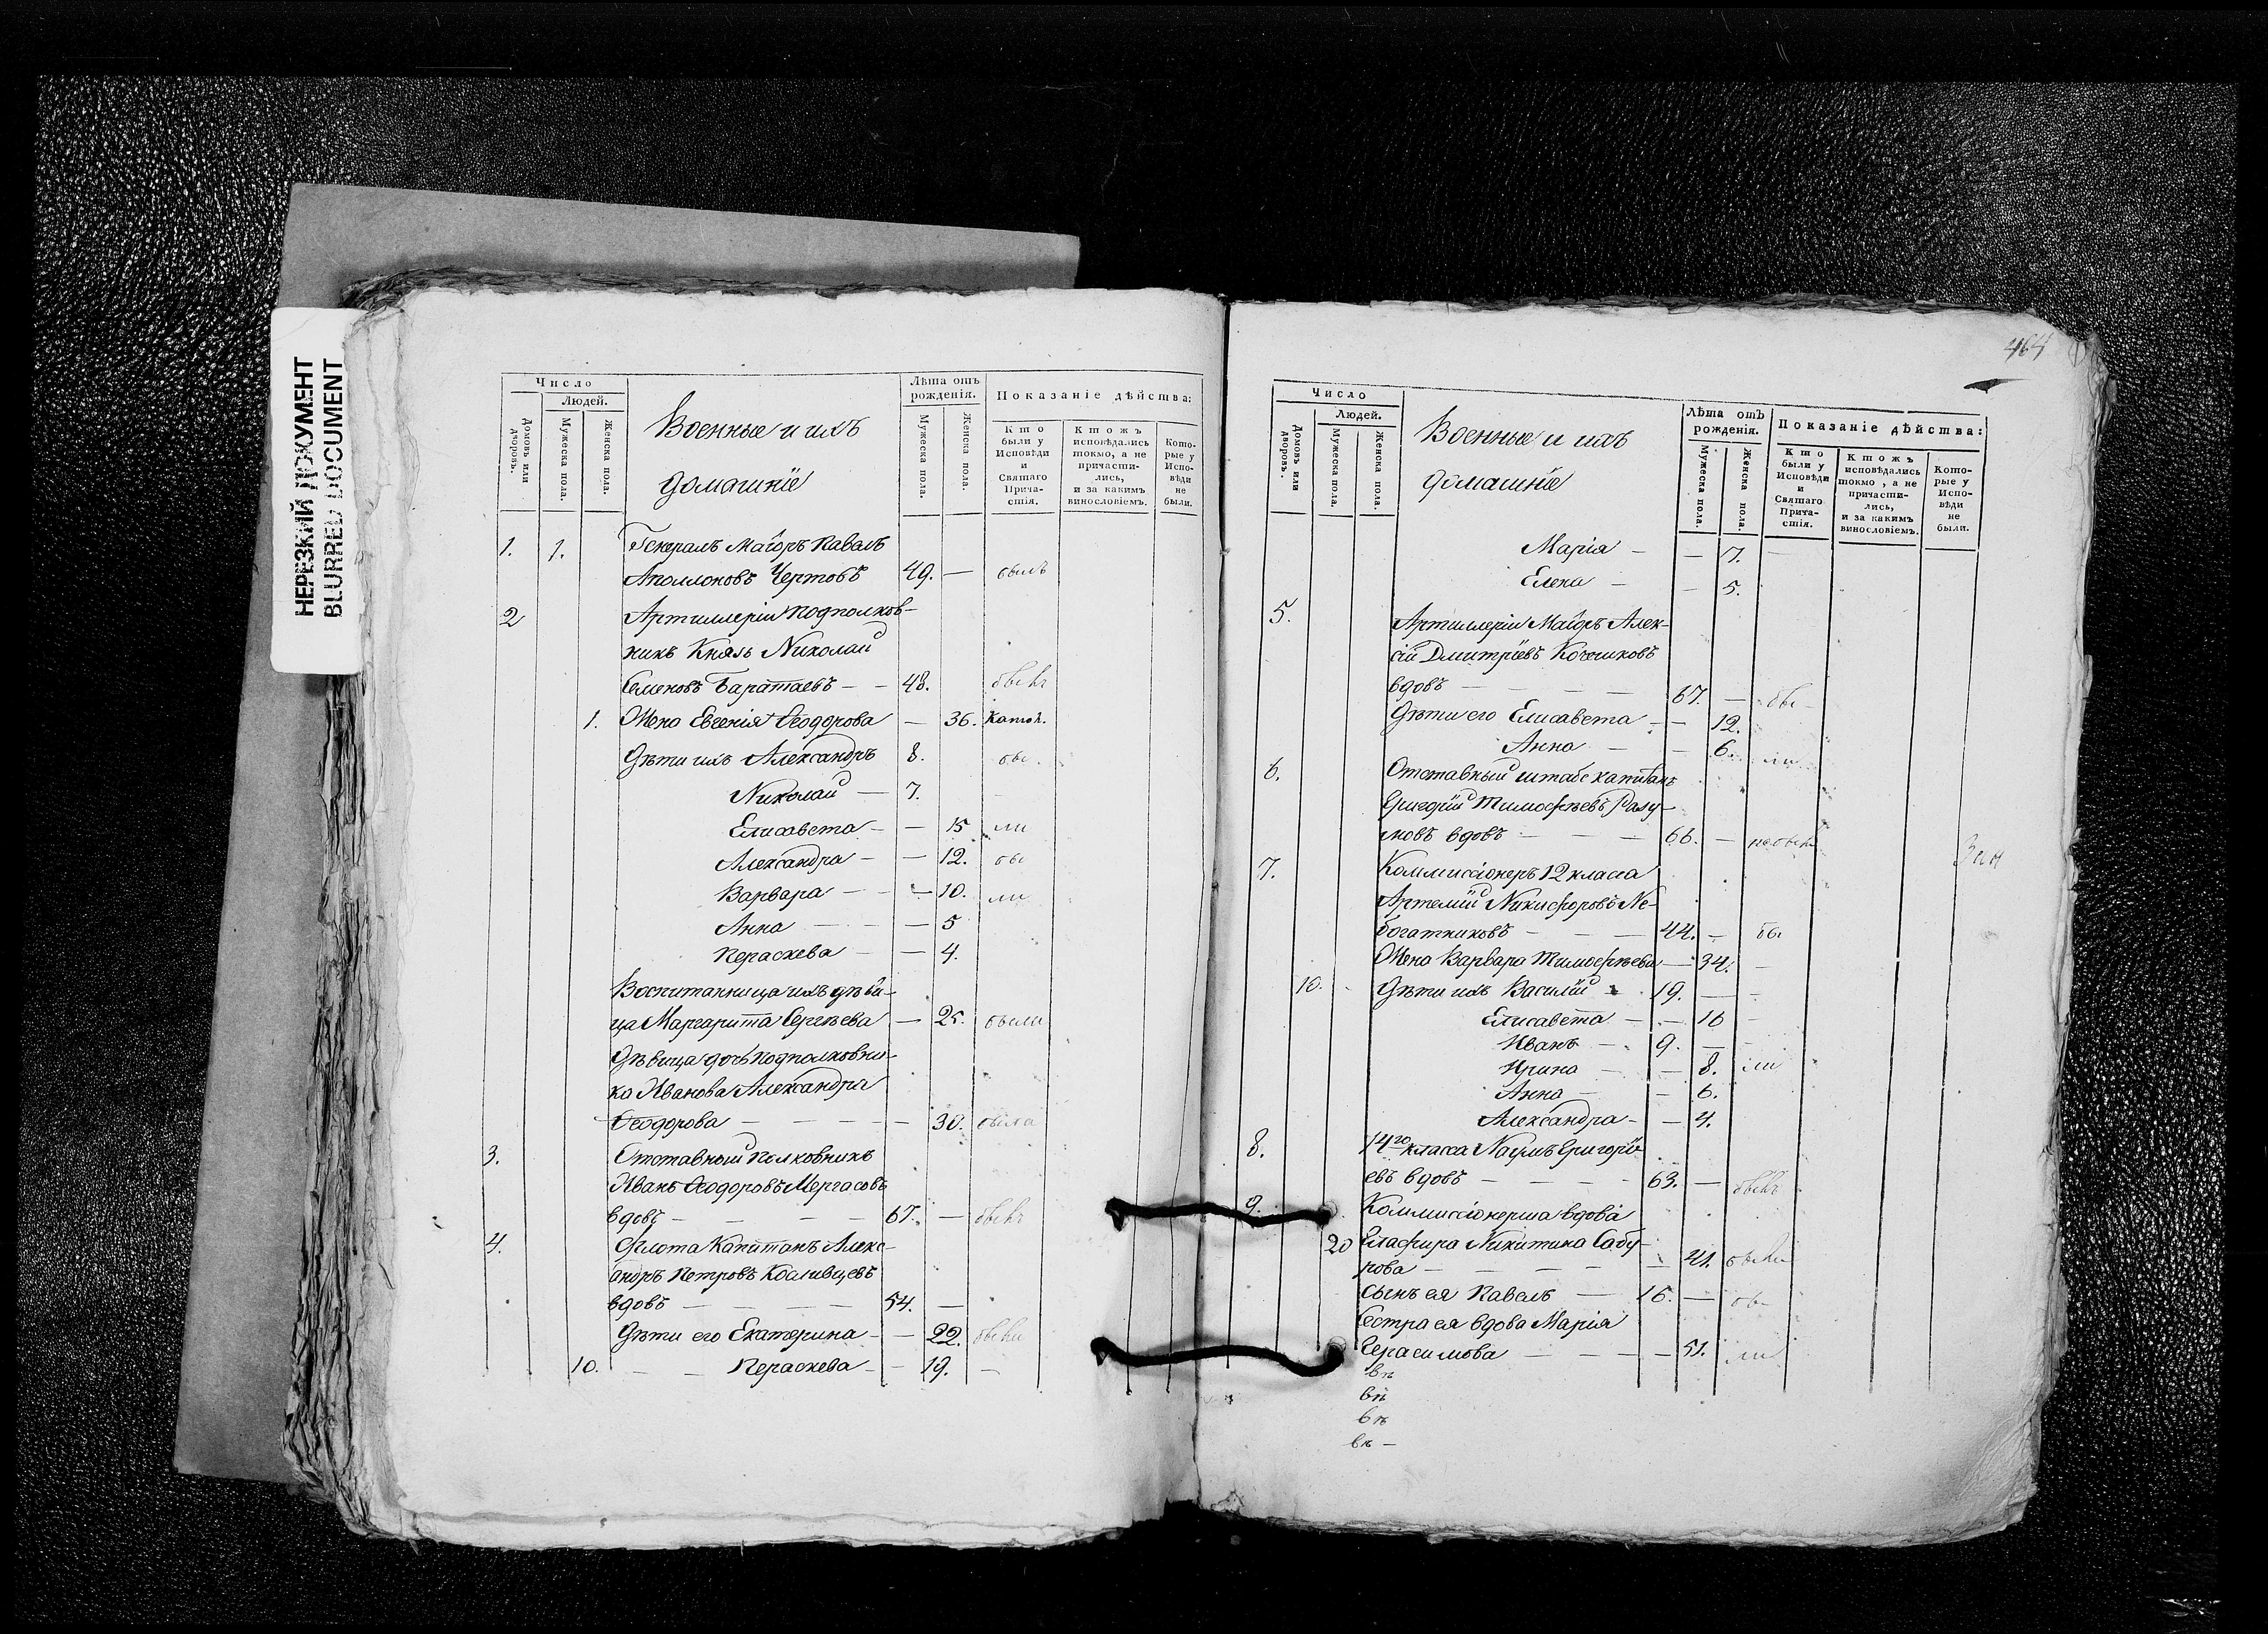 НЕРЕЗКИЙ ДОКУМЕНТ
BLURRED DOCUMENT
Число
Людей.
Домовъ или дворовъ.
Мужеска пола.
Женска пола.
Военные и ихъ
домашніе
Лѣта отъ рожденія.
Мужеска пола.
Женска пола.
Показаніе дѣйства:
Кто были у Исповѣди и Святаго Причастія.
Ктожъ исповѣдались токмо, а не причастились, и за какимъ винословіемъ.
Которые у Исповѣди не были.
1. 1. Генералъ Маіоръ Павелъ
Аполлоновъ Чертовъ 49. — былъ
2 Артиллеріи Подполков-
никъ Князь Николай
Семеновъ Баратаевъ — — 48.
1. Жена Евгенія Ѳеодорова — 36. катол.
Дѣти ихъ Александръ 8.
Николай — 7.
Елисавета — — 15 ли
Александра — — 12.
Варвара — — 10. ли
Анна — — 5
Пераскева — — 4.
Воспитанница ихъ дѣви-
ца Маргарита Сергѣева — 25. были
Дѣвица дочь подполковни-
ка Иванова Александра
Ѳеодорова — — — — 30. была
3. Отставный полковникъ
Иванъ Ѳеодоровъ Мергасовъ
вдовъ — — — — 67. —
4. Флота Капитанъ Алекс-
андръ Петровъ
вдовъ — — — — 54. —
Дѣти его Екатерина — — 22.
10. — — Пераскева — — 19. —
464
Число
Людей.
Домовъ или дворовъ.
Мужеска пола.
Женска пола.
Военные и ихъ
домашніе
Лѣта отъ рожденія.
Мужеска пола.
Женска пола.
Показаніе дѣйства:
Кто были у Исповѣди и Святаго Причастія.
Ктожъ исповѣдались токмо, а не причастились, и за какимъ винословіемъ.
Которые у Исповѣди не были.
Марія — — 7. —
Елена — — 5.
5. Артиллеріи Маіоръ Алек-
сій Дмитріевъ
вдовъ — — — — 67. —
Дѣти его Елисавета — — 12.
Анна — — 6. ли
6. Отставный штабс капитанъ
Григорій Тимофѣевъ Разу-
мовъ вдовъ — — — 66. —
7. Коммиссіонеръ 12 класса
Артемій Никифоровъ Не-
богатиковъ — — — 44. —
Жена Варвара Тимофѣева — 34. —
10. Дѣти ихъ Василій 19. — —
Елисавета — — 16 —
Иванъ — 9. —
Ирина — — 8. ли
Анна — — 6.
Александра — — 4.
8. 14го класса Наумъ Григорі-
евъ вдовъ — — — — 63. —
9. Коммиссіонерша вдова
20 Глафира Никитина Сабу-
рова — — — — — 41.
Сынъ ея Павелъ — 16. —
Сестра ея вдова Марія
Герасимова — — — — 51. ли